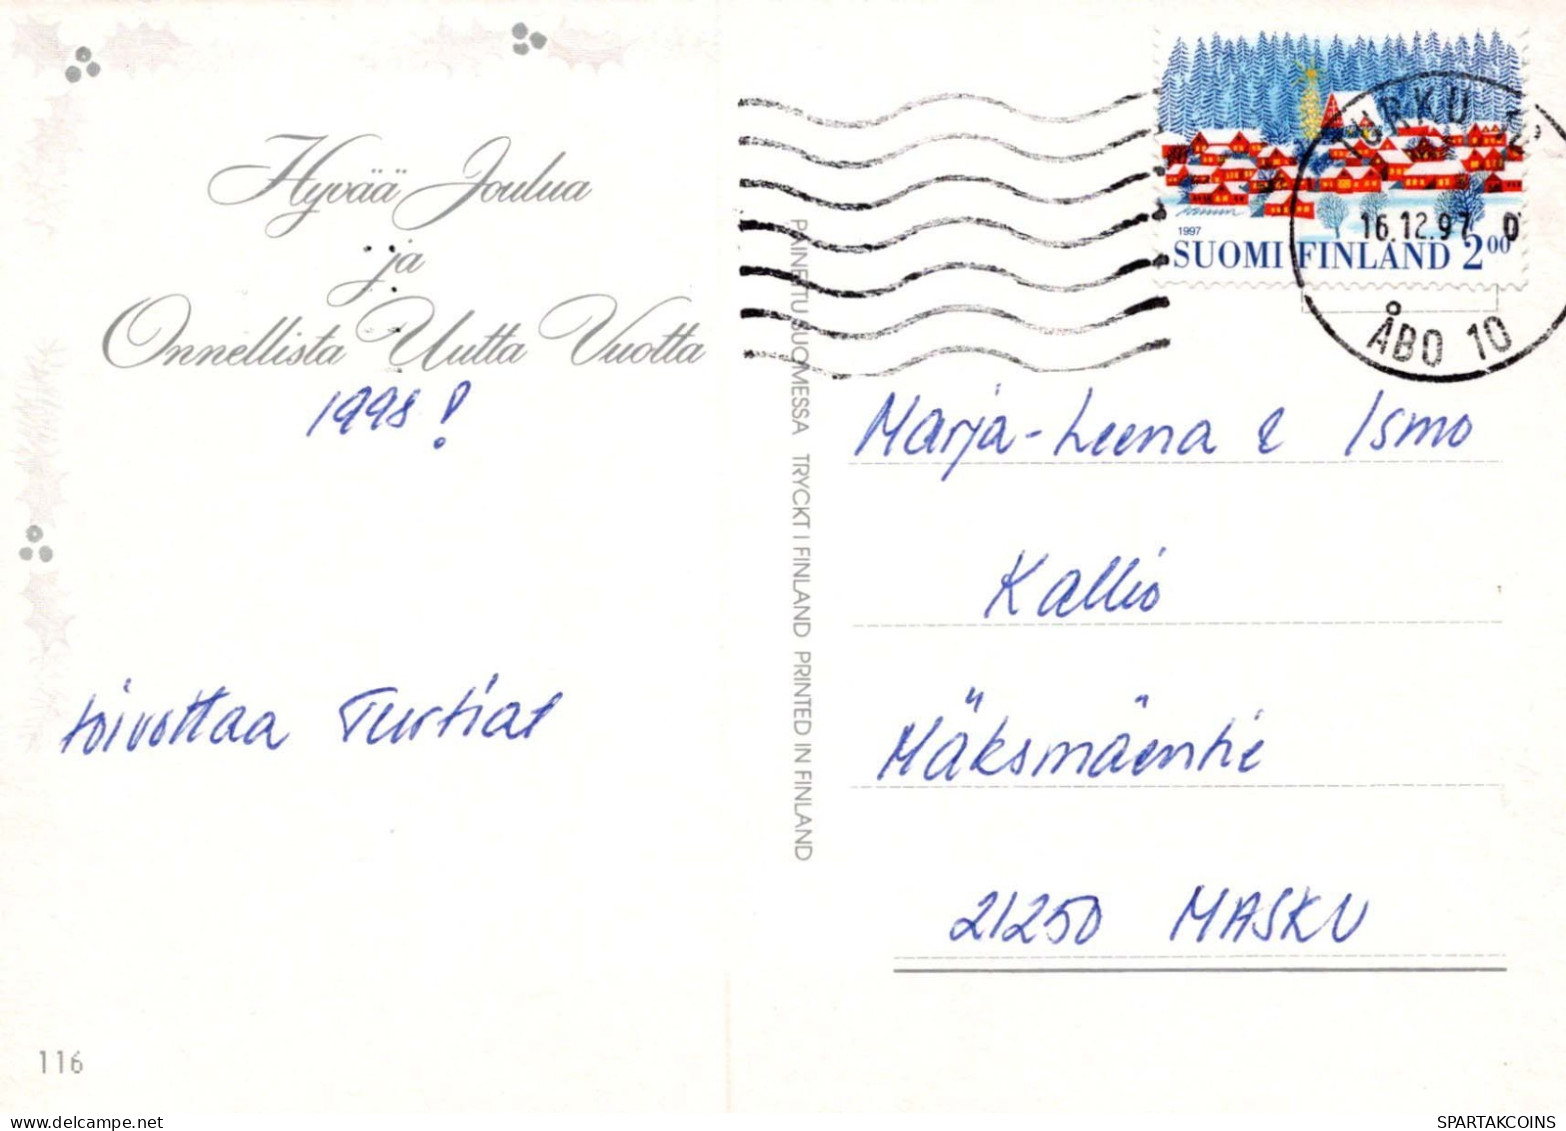 Hyvää Joulua
ja
Onnellista Uutta Vuotta
1998!
toivottaa Turtiat
116
PAINETTU SUOMESSA TRYCKT I FINLAND PRINTED IN FINLAND
1997
SUOMI FINLAND 2.00
TURKU
16.12.97
ÅBO 10
Marja-Leena & Ismo
Kallio
Mäksmäentie
21250 MASKU
SPARTAKCOINS